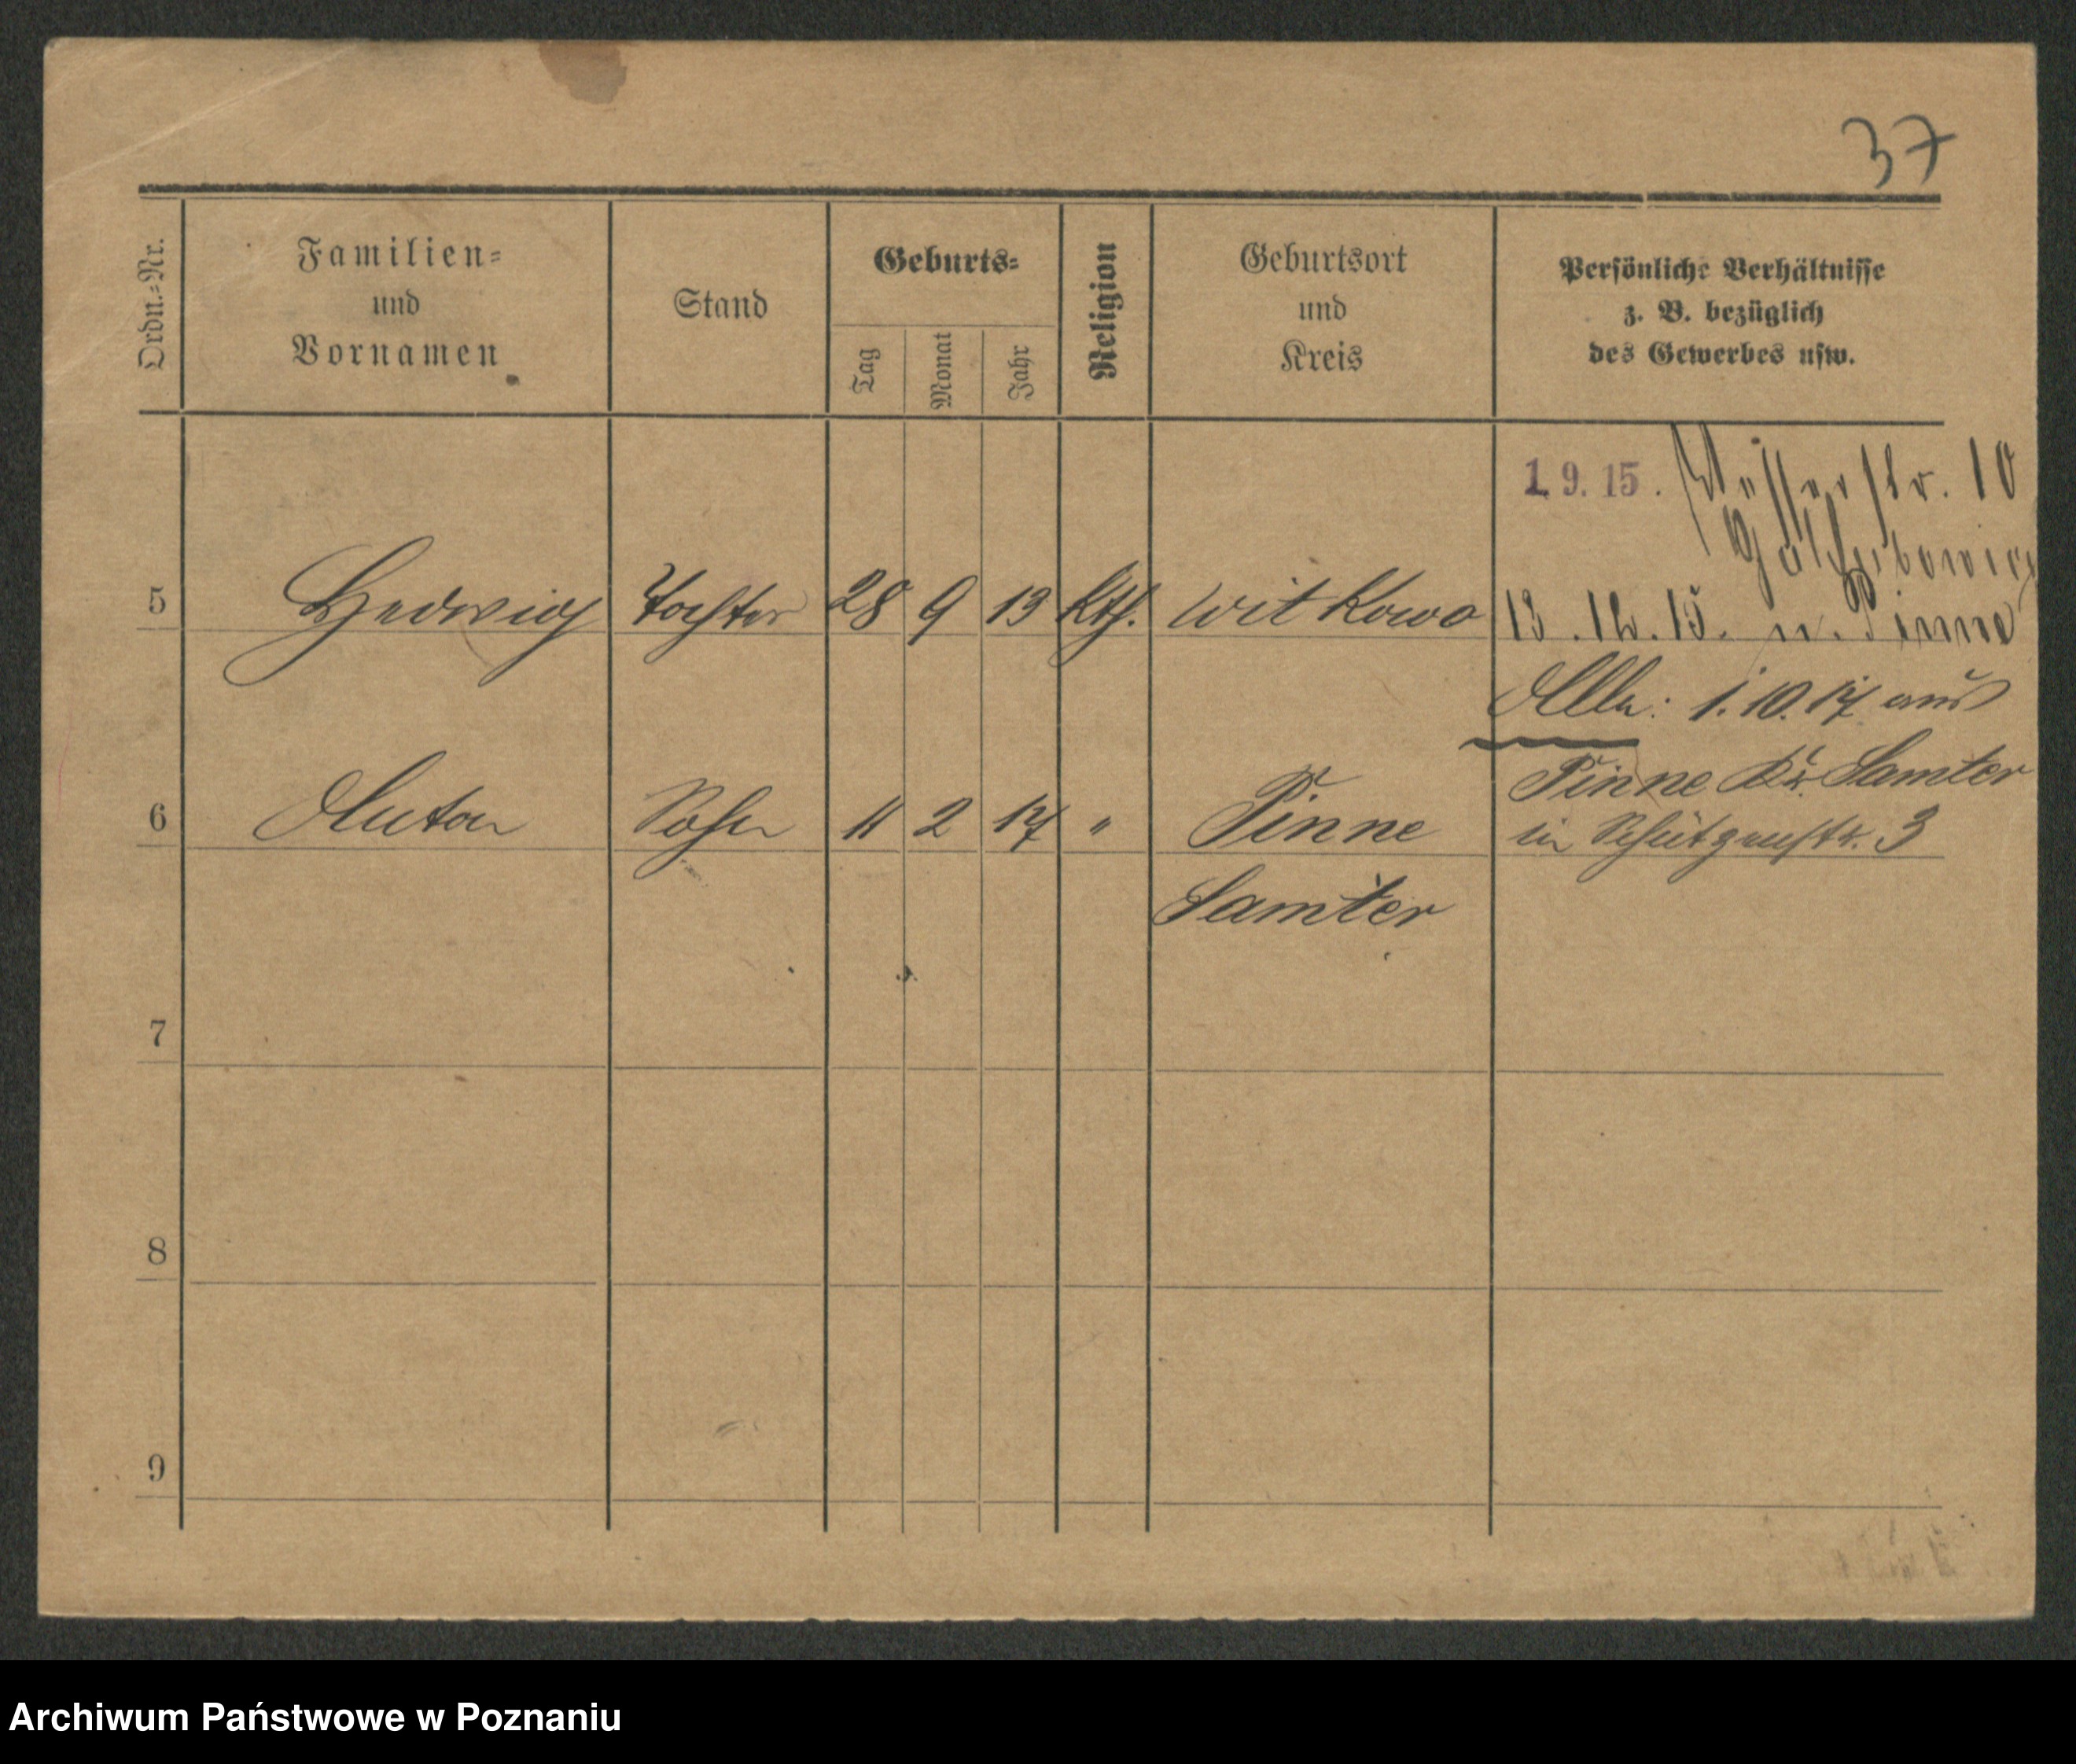 37
Ordn.-Nr.
Familien-
und
Vornamen
Stand
Geburts-
Tag
Monat
Jahr
Religion
Geburtsort
und
Kreis
Persönliche Verhältnisse
z. B. bezüglich
des Gewerbes usw.
1. 9. 15. str. 10
5 Hedwig Tochter 28 9 13 kth. Witkowo
13. 12. 15. n. Pinne
Alle: 1. 10. 17 aus
Pinne Kr. Samter
6 Anton Sohn 11 2 17 " Pinne
in Schützenstr. 3
Samter
7
8
9
Archiwum Państwowe w Poznaniu